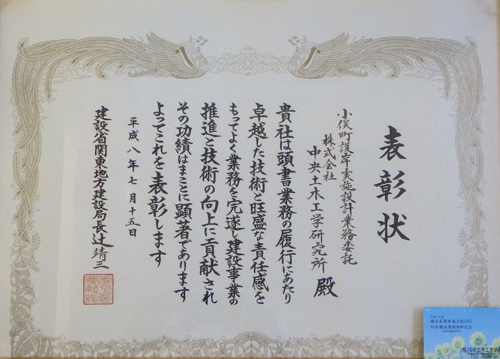 表彰状
小俣町護岸実施設計業務委託
株式会社
中央土木工学研究所 殿
貴社は頭書業務の履行にあたり
卓越した技術と旺盛な責任感を
もってよく業務を完遂し建設事業の
推進と技術の向上に貢献され
その功績はまことに顕著であります
よってこれを表彰します
平成八年七月十五日
建設省関東地方建設局長辻靖三